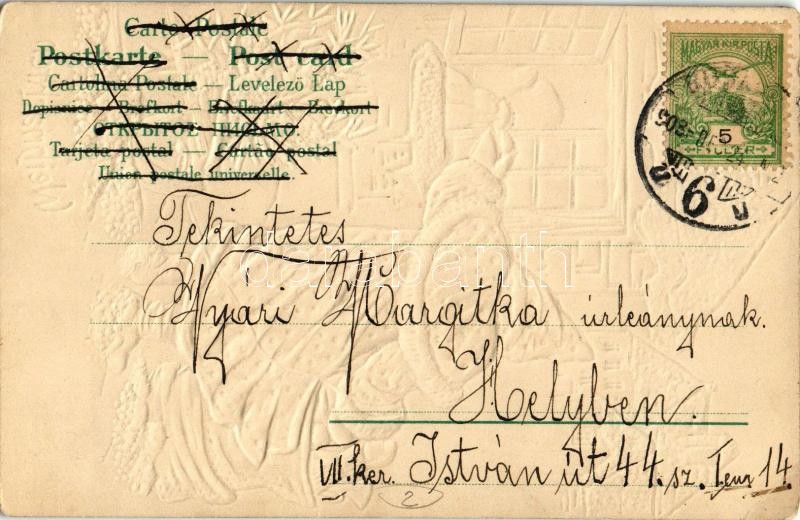 Carton Postale
Postkarte — Post card
Cartolina Postale — Levelező Lap
Dopisnice — Brefkort — Briefkaart — Brevkort
ОТКРЫТОЕ ПИСЬМО.
Tarjeta postal — Cartão postal
Union postale universelle.
MAGYAR KIR. POSTA
5
FILLÉR
905
6
Tekintetes
Nyári Margitka úrleánynak.
darabanth
Helyben.
VII. ker. István út 44. sz. I em 14.
2